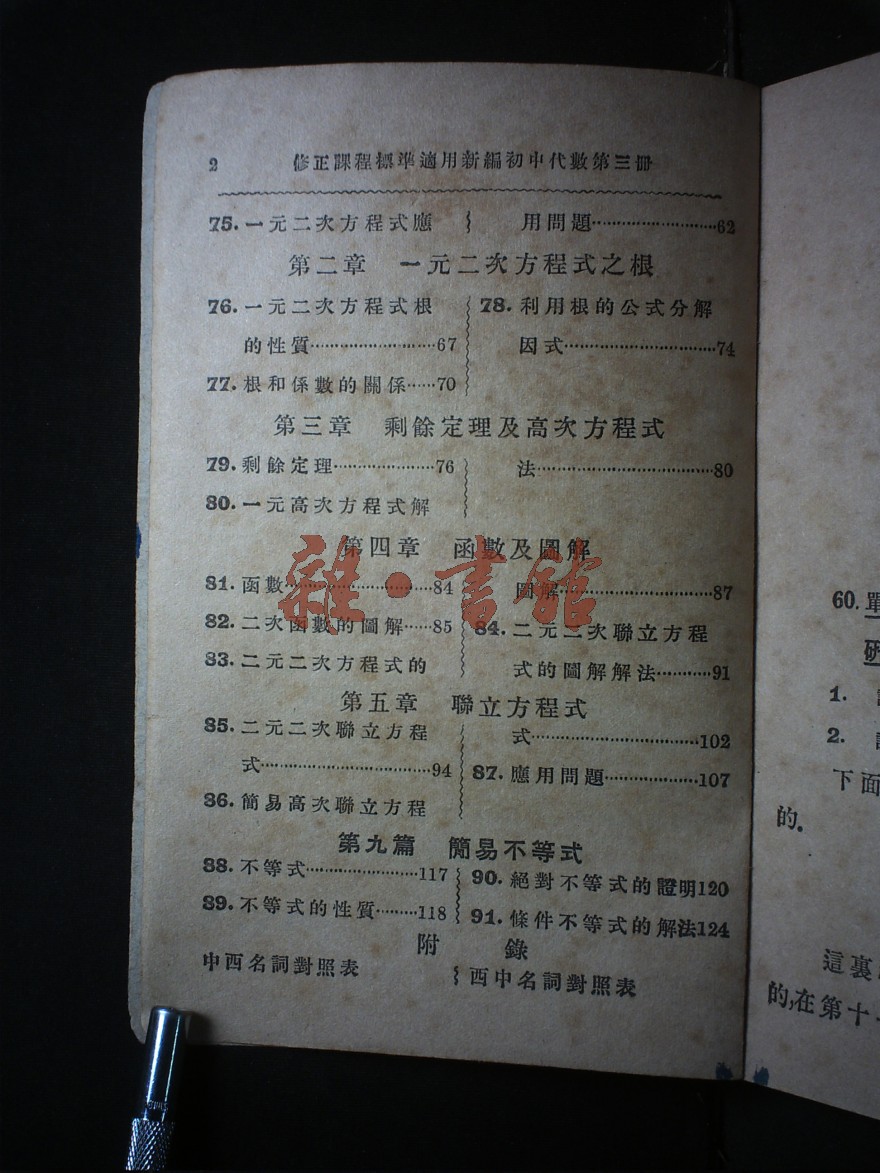 2 修正課程標準適用新編初中代數第三冊
75. 一元二次方程式應
用問題························62
第二章 一元二次方程式之根
76. 一元二次方程式根
的性質·······················67
77. 根和係數的關係······70
78. 利用根的公式分解
因式·····························74
第三章 剩餘定理及高次方程式
79. 剩餘定理···················76
80. 一元高次方程式解
法··································80
第四章 函數及圖解
81. 函數····························84
82. 二次函數的圖解·····85
83. 二元二次方程式的
圖解·····························87
84. 二元二次聯立方程
式的圖解解法··········91
第五章 聯立方程式
85. 二元二次聯立方程
式································94
86. 簡易高次聯立方程
式································102
87. 應用問題·················107
第九篇 簡易不等式
88. 不等式·····················117
89. 不等式的性質········118
90. 絕對不等式的證明120
91. 條件不等式的解法124
附 錄
中西名詞對照表
西中名詞對照表
雜·書館
60. 單
1.
2.
下面
的.
這裏
的,在第十